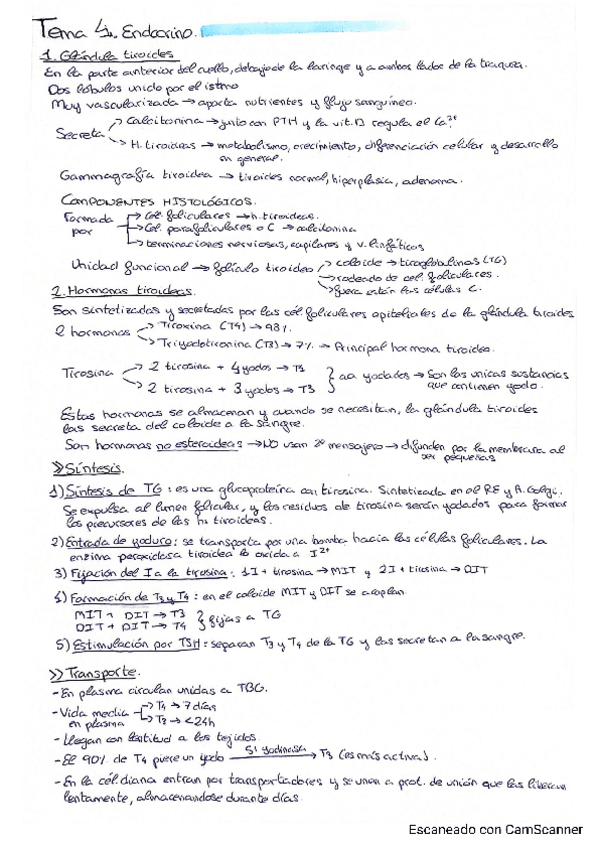 Tema 4. Endocrino.
1. Glándula tiroides
En la parte anterior del cuello, debajo de la laringe y a ambos lados de la traquea.
Dos lóbulos unido por el istmo
Muy vascularizada → aporta nutrientes y flujo sanguíneo.
Secreta → Calcitonina → junto con PTH y la vit. D regula el Ca²⁺
→ H. tiroideas → metabolismo, crecimiento, diferenciación celular y desarrollo
en general.
Gammagrafía tiroidea → tiroides normal, hiperplasia, adenoma.
COMPONENTES HISTOLÓGICOS.
Formada por → Cél. foliculares → h. tiroideas.
→ Cél. parafoliculares o C → calcitonina
→ terminaciones nerviosas, capilares y v. linfáticos
Unidad funcional → folículo tiroideo → coloide → tiroglobulinas (TG)
→ rodeado de cél. foliculares.
→ fuera están las células C.
2. Hormonas tiroideas.
Son sintetizadas y secretadas por las cél. foliculares epiteliales de la glándula tiroides
2 hormonas → Tiroxina (T4) → 93%
→ Triyodotironina (T3) → 7% → Principal hormona tiroidea.
Tirosina → 2 tirosina + 4 yodos → T4
→ 2 tirosina + 3 yodos → T3
} aa yodados → Son las unicas sustancias
que contienen yodo.
Estas hormonas se almacenan y cuando se necesitan, la glándula tiroides
las secreta del coloide a la sangre.
Son hormonas no esteroideas → NO usan 2º mensajero → difunden por la membrana al
ser pequeñas
» Síntesis.
1) Síntesis de TG: es una glucoproteína con tirosina. Sintetizada en el RE y A. Golgi.
Se expulsa al lumen folicular, y los residuos de tirosina serán yodados para formar
los precursores de las h. tiroideas.
2) Entrada de yoduro: se transporta por una bomba hacia las células foliculares. La
enzima peroxidasa tiroidea lo oxida a I²⁺
3) Fijación del I a la tirosina: 1I + tirosina → MIT y 2I + tirosina → DIT
4) Formación de T3 y T4: en el coloide MIT y DIT se acoplan
MIT + DIT → T3
DIT + DIT → T4 } fijas a TG
5) Estimulación por TSH: separan T3 y T4 de la TG y las secretan a la sangre.
» Transporte.
- En plasma circulan unidas a TBG.
- Vida media en plasma → T4 → 7 días
→ T3 → <24h
- Llegan con lentitud a los tejidos.
- El 90% de T4 pierde un yodo → 5' yodinasa → T3 (es más activa).
- En la cél diana entran por transportadores y se unen a prot. de unión que las liberan
lentamente, almacenandose durante días.
Escaneado con CamScanner